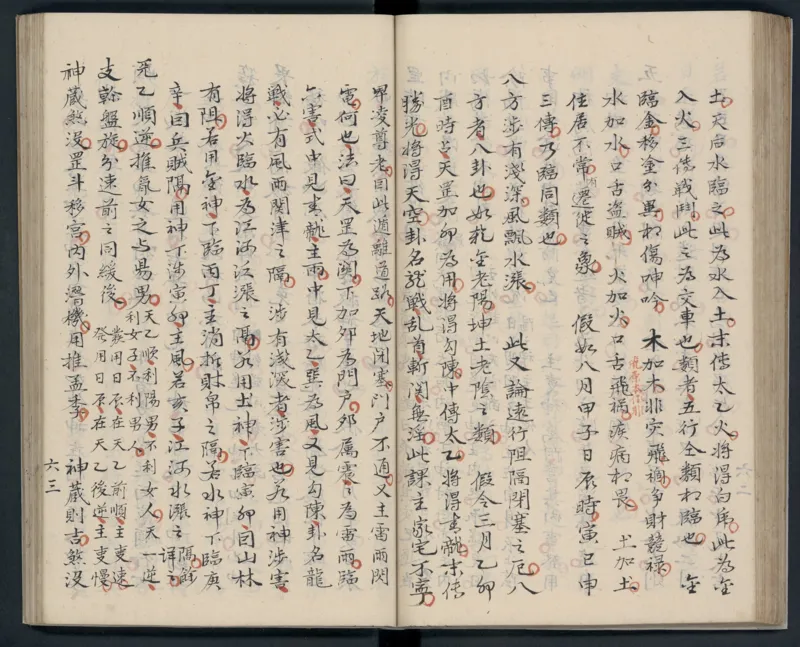 土灾后水臨之此為水入土末傳太乙火將得白虎此為金
入火三傳戰鬥此之為交車也類者五行仝類相臨也 金
臨金移塗分異相傷呻吟 木加木非灾飛禍爭財競祿
水加水口舌盜賊 火加火口舌飛禍疾病相畏 土加土
住居不常遷徙之象 假如八月甲子日辰時寅巳申
三傳乃臨同類也
八方涉有淺深風飄水漲 此又論遠行阻隔閉塞之厄八
方者八卦也如乾金老陽坤土老陰之類 假令三月乙卯
酉時占天罡加卯為用將得勾陳中傳太乙將得青龍末傳
勝光將得天空卦名龍戰乱首斬関無淫此課主家宅不寧
卑凌尊老因此遁離道路天地閉塞門戶不通又主雷雨関
電何也法曰天罡為関下加卯為門戶卯属震之為雷雨臨
六害式中見青龍主雨中見太乙巽為風又見勾陳卦名龍
戰必有風雨関津之隔 涉有淺深者涉害也若用神涉害
將得火臨水為江河江漲之隔若用土神下臨寅卯曰山林
有阻若用金神下臨丙丁主消折財帛之隔若水神下臨庚
辛曰兵賊隔用神下涉寅卯主風若亥子江河水漲之隔餘詳之
乙順逆推氣女之占陽男
天乙順利陽男不利女人天一逆
利女子不利男人
支幹盤旋分速前之同緩後
發用日辰在天乙前順主吏速
發用日辰在天乙後逆主吏慢
神藏煞沒罡斗移宮內外潛機用推孟季 神藏則吉煞沒
六三